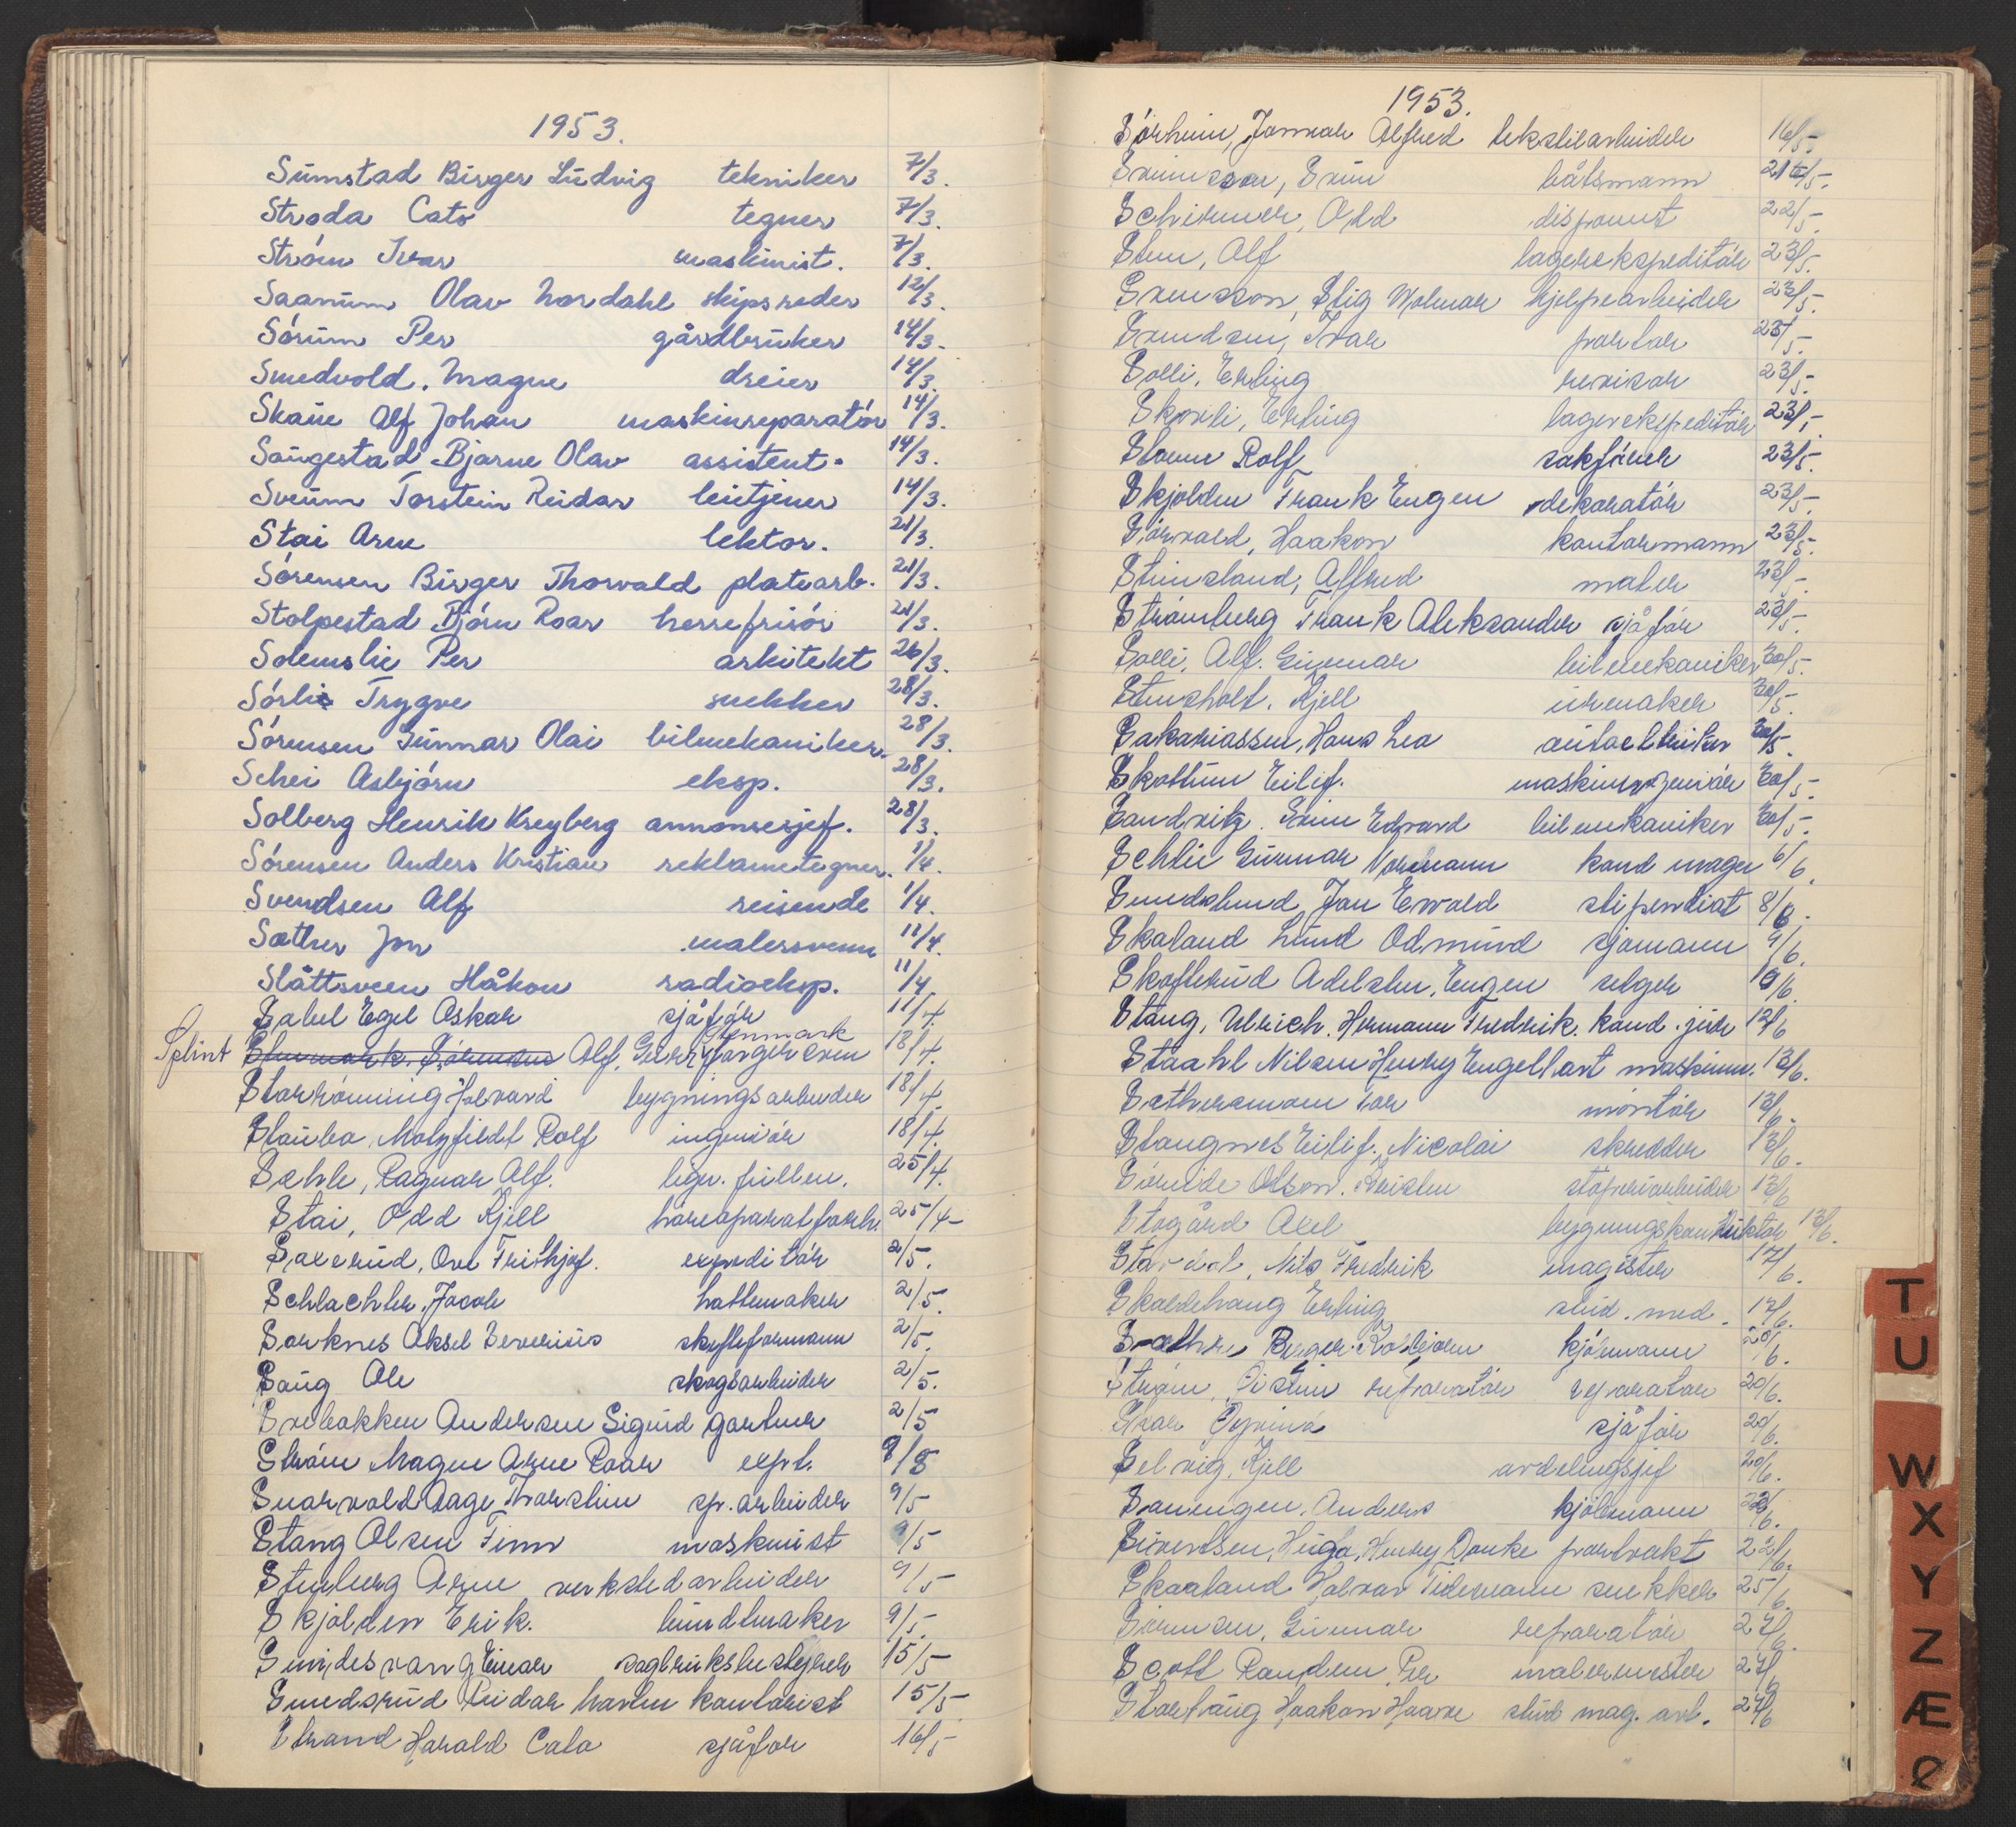 1953.
Sumstad Birger Ludvig tekniker 7/3.
Stroda Cato tegner 7/3.
Strøm Ivar maskinist. 7/3.
Saanum Olav Nordahl skipsreder 12/3.
Sørum Per gårdbruker 14/3.
Smedvold. Magne dreier 14/3.
Skaue Alf Johan maskinreparatør 14/3.
Saugestad Bjarne Olav assistent. 14/3.
Sveum Torstein Reidar leietjener 14/3.
Stai Arne lektor. 21/3.
Sørensen Birger Thorvald platearb. 21/3.
Stolpestad Bjørn Roar herrefrisør 21/3.
Solemslie Per arkitekt 26/3.
Sørlie Trygve snekker 28/3.
Sørensen Gunnar Olai bilmekaniker. 28/3.
Schei Asbjørn eksp. 28/3.
Solberg Henrik Kreyberg annonsesjef. 28/3.
Sørensen Anders Kristian reklametegner. 1/4.
Svendsen Alf reisende 1/4.
Sæther Jon malersvenn 11/4.
Slåttsveen Håkon radioeksp. 11/4
Sabel Egel Oskar sjåfør 11/4.
Splint Stenmark Sørensen Alf. 18/4. Stenmark
Storrønning Halvard bygningsarbeider 18/4
Stauba, Rolf ingeniør 18/4.
Sehle, Ragnar Alf. 25/4.
Stai, Odd Kjell høreaparatforh. 25/4-
Saxerud, Ove Frithjof. expeditør 2/5.
Schlachter, Jacob hattemaker 2/5.
Sørknes Aksel Severius skifteformann 2/5.
Saug Ole skogsarbeider 2/5.
Svebakken Andersen Sigurd gartner 2/5
Strøm Magne Arne Roar expt. 8/5
Snarvold Aage Thorstein sp. arbeider 9/5
Stang Olsen Finn maskinist 9/5
Stenberg Arne verkstedarbeider 9/5
Skjolden Erik. bundtmaker 9/5.
Smidesvang Einar sagbruksbestyrer 15/5
Smedsrud Reidar Martin kontorist 15/5
Strand Harald Cato sjåfør 16/5
1953.
Sørheim, Jomar Alfred tekstilarbeider 16/5-
Svensson, Sven båtsmann 21/5.
Schirmer, Odd disponent 22/5.
Sten, Alf lagerekspeditør 23/5.
Svensson, Stig Holmar hjelpearbeider 23/5.
Svendsen, Ivar portør 23/5.
Solli, Erling revisor 23/5-
Skovli, Erling lagerekspeditør 23/5
Storm Rolf sakfører 23/5.
Skjolden Frank Eugen dekoratør 23/5.
Sørvald, Haakon kontormann 23/5.
Steinsland, Alfred maler 23/5-
Strømberg Frank Aleksander sjåfør 23/5.
Solli, Alf. Gunnar bilmekaniker 30/5.
Stensholt, Kjell urmaker 30/5.
Sakariassen, Hans Leo 30/5.
Skottun Eilif. maskiningeniør 30/5.
Sandvitz Svein Edvard bilmekaniker 30/5.
Schlie Gunnar Normann kand mager 6/6
Smedslund Jan Ewald stipendiat 8/6.
Skaland Lund Odmund sjømann 9/6.
Skofterud Adelsten, Eugen selger 10/6.
Stang, Ulrich, Hermann Fredrik. kand. jur 12/6
Staahl Nilsen Henry Engelhart maskinm. 13/6.
Sethersmoen Tor montør 13/6.
Staugnes Eilif. Nicolai skredder 13/6.
Sørlide Olson. Kristen støperiarbeider 13/6
Stogård Axel bygningskonduktør 13/6.
Stordal, Nils Fredrik magister 17/6.
Skaldehaug Erling stud. med. 17/6.
Sæthre Birger kjølemann 20/6.
Strøm, Øistein reparatør reparatør 20/6.
sjåfør 20/6.
Selvig, Kjell avdelingsjef 20/6.
Sanengen, Anders kjølemann 22/6.
Sivertsen, Hugo, Henry Danke portvakt 22/6.
Skaaland Halvar Tidemann snekker 25/6.
Sørensen, Gunnar reparatør 27/6.
Scott Randem Per malermester 27/6
Storhaug Haakon Haave stud mag. art. 27/6
T
U
W
X
Y
Z
Æ
Ø